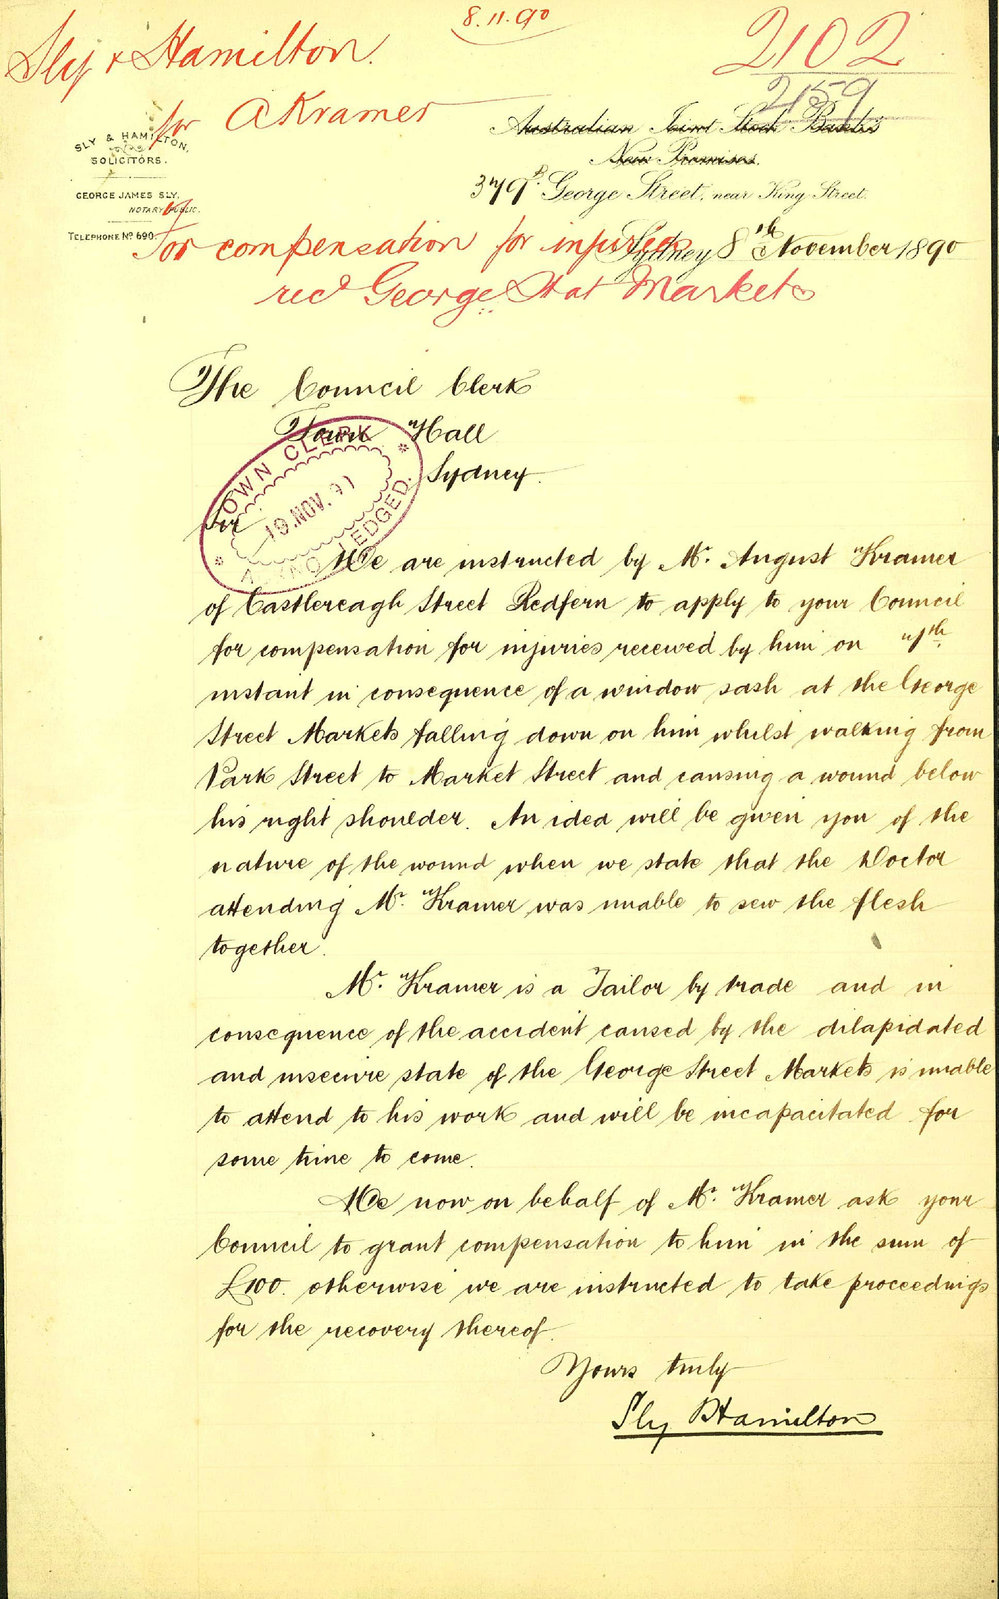 8.11.90
Sly & Hamilton.
2102
for A Kramer
2159
SLY & HAMILTON,
SOLICITORS.
GEORGE JAMES SLY,
NOTARY PUBLIC.
TELEPHONE No 690.
Australian Joint Stock Banks
New Premises.
379 George Street, near King Street.
Sydney 8th November 1890
for compensation for injuries
recd George St at Markets
The Council Clerk
Town Hall
Sydney.
TOWN CLERK
19. NOV. 9
ACKNOWLEDGED.
Sir
We are instructed by Mr. August Kramer
of Castlereagh Street Redfern to apply to your Council
for compensation for injuries received by him on 7th
instant in consequence of a window sash at the George
Street Markets falling down on him whilst walking from
Park Street to Market Street and causing a wound below
his right shoulder. An idea will be given you of the
nature of the wound when we state that the Doctor
attending Mr. Kramer was unable to sew the flesh
together.
Mr. Kramer is a Tailor by trade and in
consequence of the accident caused by the dilapidated
and insecure state of the George Street Markets is unable
to attend to his work and will be incapacitated for
some time to come.
We now on behalf of Mr. Kramer ask your
Council to grant compensation to him in the sum of
£100. otherwise we are instructed to take proceedings
for the recovery thereof.
Yours truly
Sly & Hamilton